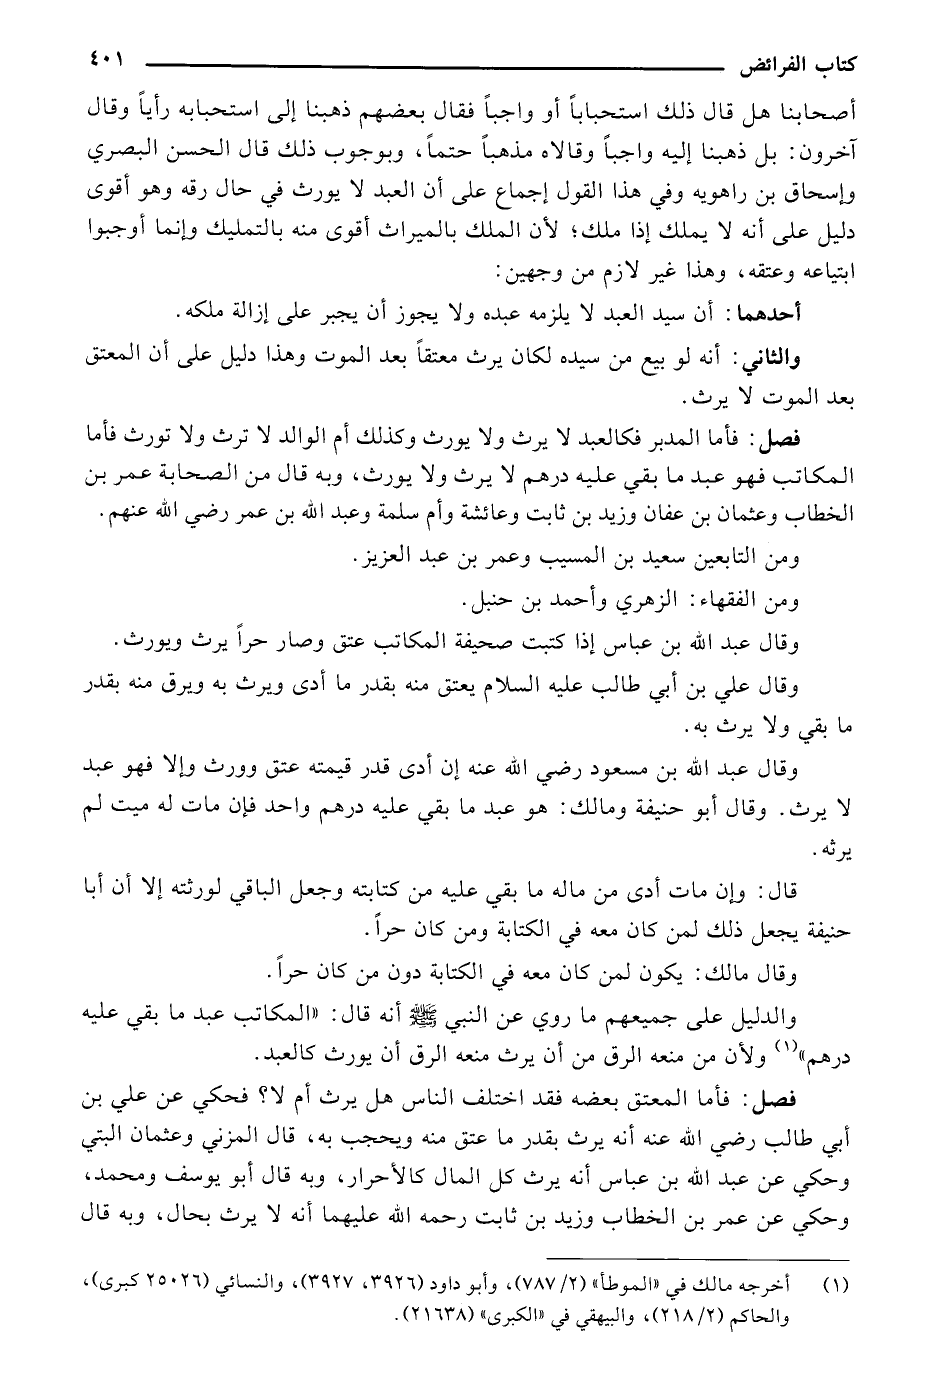 كتاب الفرائض ٤٠١
أصحابنا هل قال ذلك استحباباً أو واجباً فقال بعضهم ذهبنا إلى استحبابه رأياً وقال
آخرون: بل ذهبنا إليه واجباً وقالاه مذهباً حتماً، وبوجوب ذلك قال الحسن البصري
وإسحاق بن راهويه وفي هذا القول إجماع على أن العبد لا يورث في حال رقه وهو أقوى
دليل على أنه لا يملك إذا ملك؛ لأن الملك بالميراث أقوى منه بالتمليك وإنما أوجبوا
ابتياعه وعتقه، وهذا غير لازم من وجهين:
أحدهما: أن سيد العبد لا يلزمه عبده ولا يجوز أن يجبر على إزالة ملكه.
والثاني: أنه لو بيع من سيده لكان يرث معتقاً بعد الموت وهذا دليل على أن المعتق
بعد الموت لا يرث.
فصل: فأما المدبر فكالعبد لا يرث ولا يورث وكذلك أم الوالد لا ترث ولا تورث فأما
المكاتب فهو عبد ما بقي عليه درهم لا يرث ولا يورث، وبه قال من الصحابة عمر بن
الخطاب وعثمان بن عفان وزيد بن ثابت وعائشة وأم سلمة وعبد الله بن عمر رضي الله عنهم.
ومن التابعين سعيد بن المسيب وعمر بن عبد العزيز.
ومن الفقهاء: الزهري وأحمد بن حنبل.
وقال عبد الله بن عباس إذا كتبت صحيفة المكاتب عتق وصار حراً يرث ويورث.
وقال علي بن أبي طالب عليه السلام يعتق منه بقدر ما أدى ويرث به ويرق منه بقدر
ما بقي ولا يرث به.
وقال عبد الله بن مسعود رضي الله عنه إن أدى قدر قيمته عتق وورث وإلا فهو عبد
لا يرث. وقال أبو حنيفة ومالك: هو عبد ما بقي عليه درهم واحد فإن مات له ميت لم
يرثه.
قال: وإن مات أدى من ماله ما بقي عليه من كتابته وجعل الباقي لورثته إلا أن أبا
حنيفة يجعل ذلك لمن كان معه في الكتابة ومن كان حراً.
وقال مالك: يكون لمن كان معه في الكتابة دون من كان حراً.
والدليل على جميعهم ما روي عن النبي ﷺ أنه قال: «المكاتب عبد ما بقي عليه
درهم»(١) ولأن من منعه الرق من أن يرث منعه الرق أن يورث كالعبد.
فصل: فأما المعتق بعضه فقد اختلف الناس هل يرث أم لا؟ فحكي عن علي بن
أبي طالب رضي الله عنه أنه يرث بقدر ما عتق منه ويحجب به، قال المزني وعثمان البتي
وحكي عن عبد الله بن عباس أنه يرث كل المال كالأحرار، وبه قال أبو يوسف ومحمد،
وحكي عن عمر بن الخطاب وزيد بن ثابت رحمه الله عليهما أنه لا يرث بحال، وبه قال
(١) أخرجه مالك في «الموطأ» (٧٨٧/٢)، وأبو داود (٣٩٢٦، ٣٩٢٧)، والنسائي (٢٥٠٢٦ كبرى)،
والحاكم (٢١٨/٢)، والبيهقي في «الكبرى» (٢١٦٣٨).